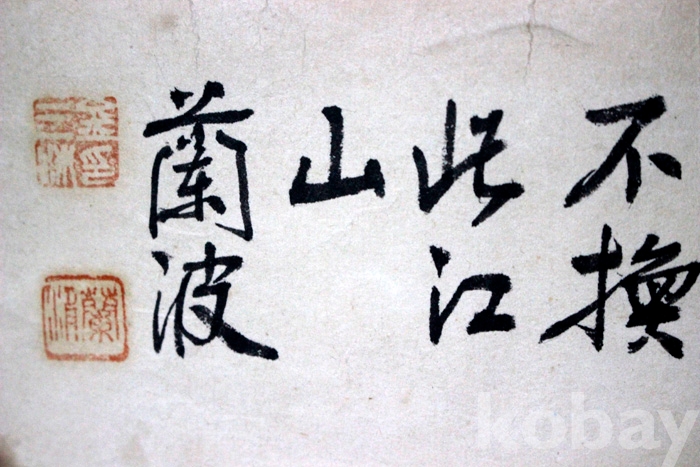 不換
此江
山
蘭波
kobay